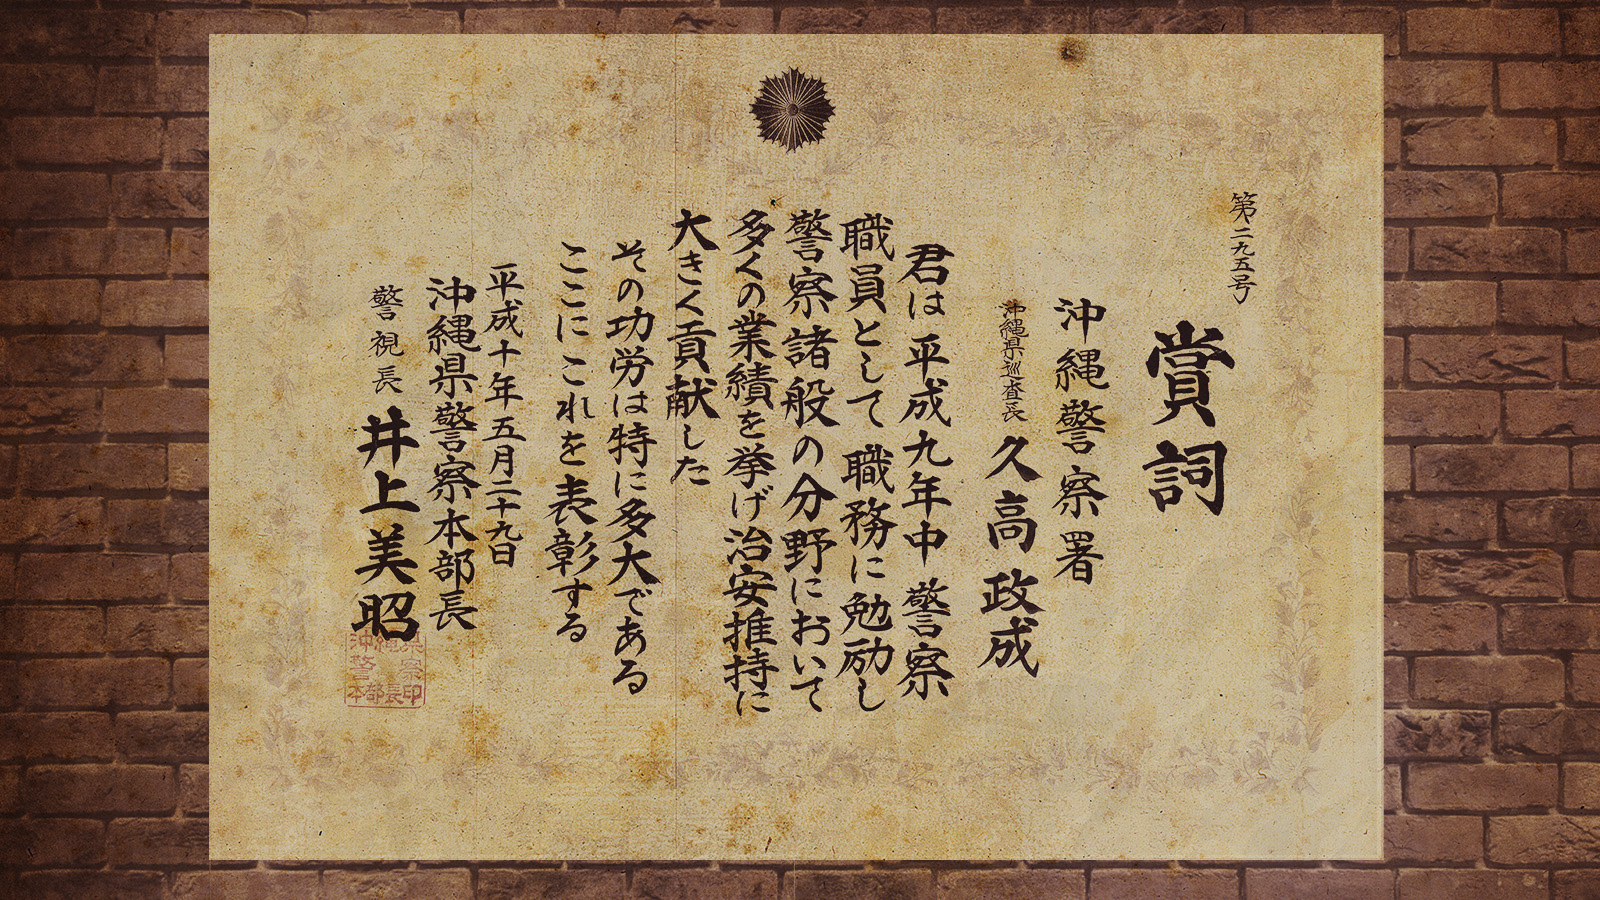 第二九五号
賞詞
沖縄警察署
沖縄県巡査長 久高政成
君は平成九年中警察
職員として職務に勉励し
警察諸般の分野において
多くの業績を挙げ治安推持に
大きく貢献した
その功労は特に多大である
ここにこれを表彰する
平成十年五月二十九日
沖縄県警察本部長
警視長 井上美昭
沖縄県
警察
本部長印